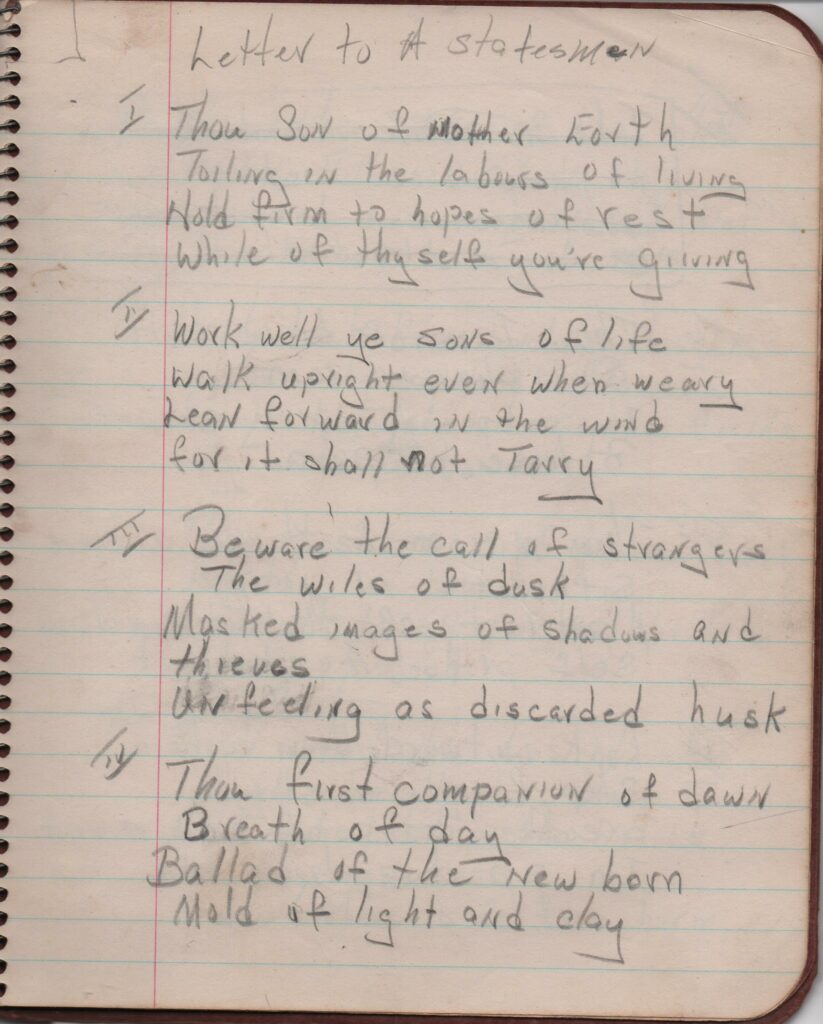 Letter to A statesmen
I Thou Son of Mother Earth
Toiling in the labours of living
Hold firm to hopes of rest
While of thyself you're giving
II Work well ye sons of life
Walk upright even when weary
Lean forward in the wind
for it shall not Tarry
III Beware the call of strangers
The wiles of dusk
Masked images of shadows and
thieves
Unfeeling as discarded husk
IV Thou first companion of dawn
Breath of day
Ballad of the New born
Mold of light and clay